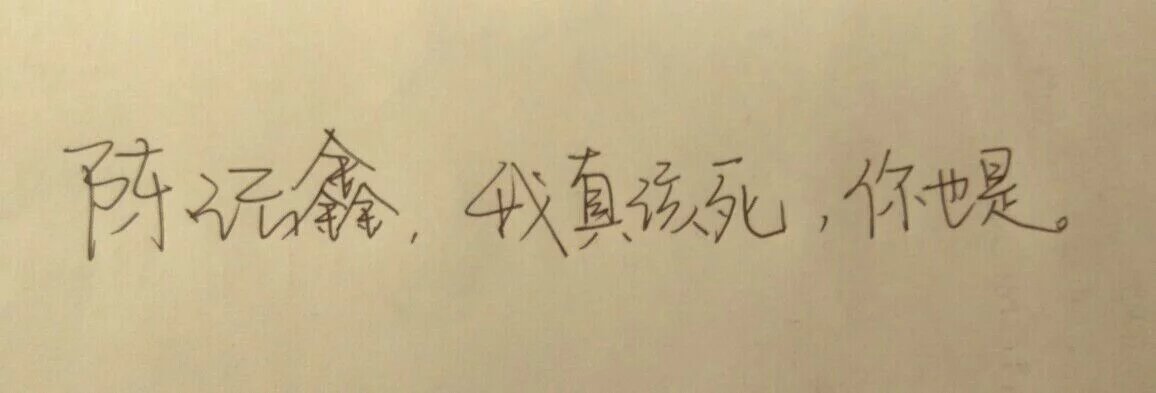 陈沅鑫，我真该死，你也是。